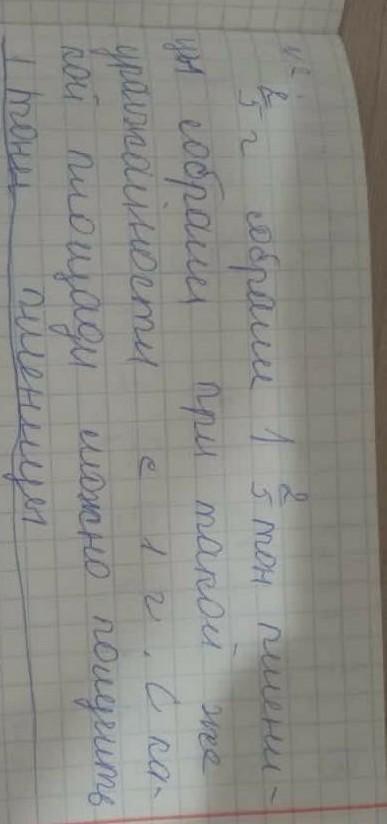 2/5 г собрали 1 2/5 тон пшени-
цы собрали при такой же
урожайности с 1 г. С ка-
кой площади можно получить
1 тонн пшеницы